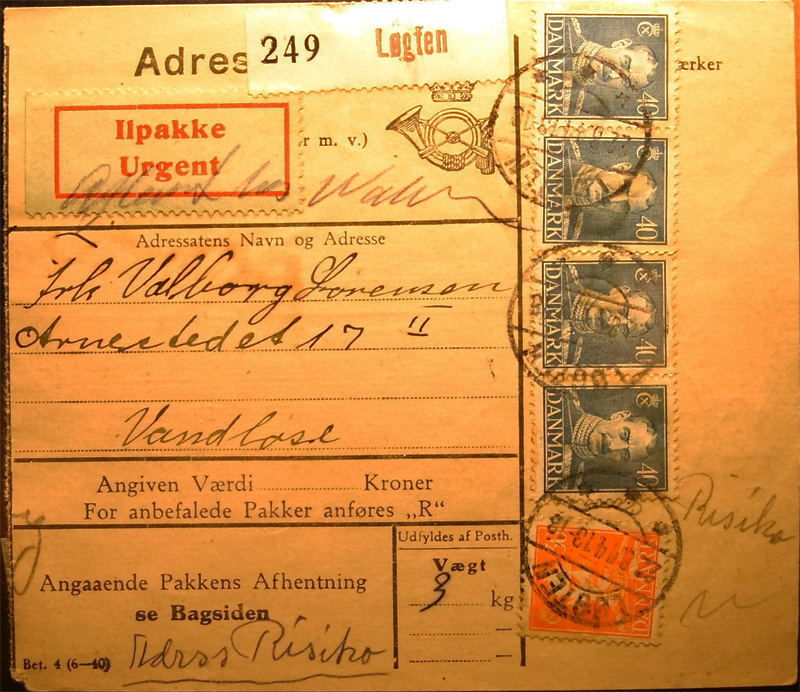 249 Løgten
Adres
ærker
Ilpakke
Urgent
r m. v.)
Adressatens Navn og Adresse
Frk Valborg Sorensen
Arnestedet 17 II
Vandløse
Angiven Værdi Kroner
For anbefalede Pakker anføres „R“
Udfyldes af Posth.
Vægt
3 kg
Angaaende Pakkens Afhentning
se Bagsiden
Bet. 4 (6—40)
Adrss Risiko
DANMARK 40
DANMARK 40
DANMARK 40
DANMARK 40
DANMARK
LØGTEN
Risiko